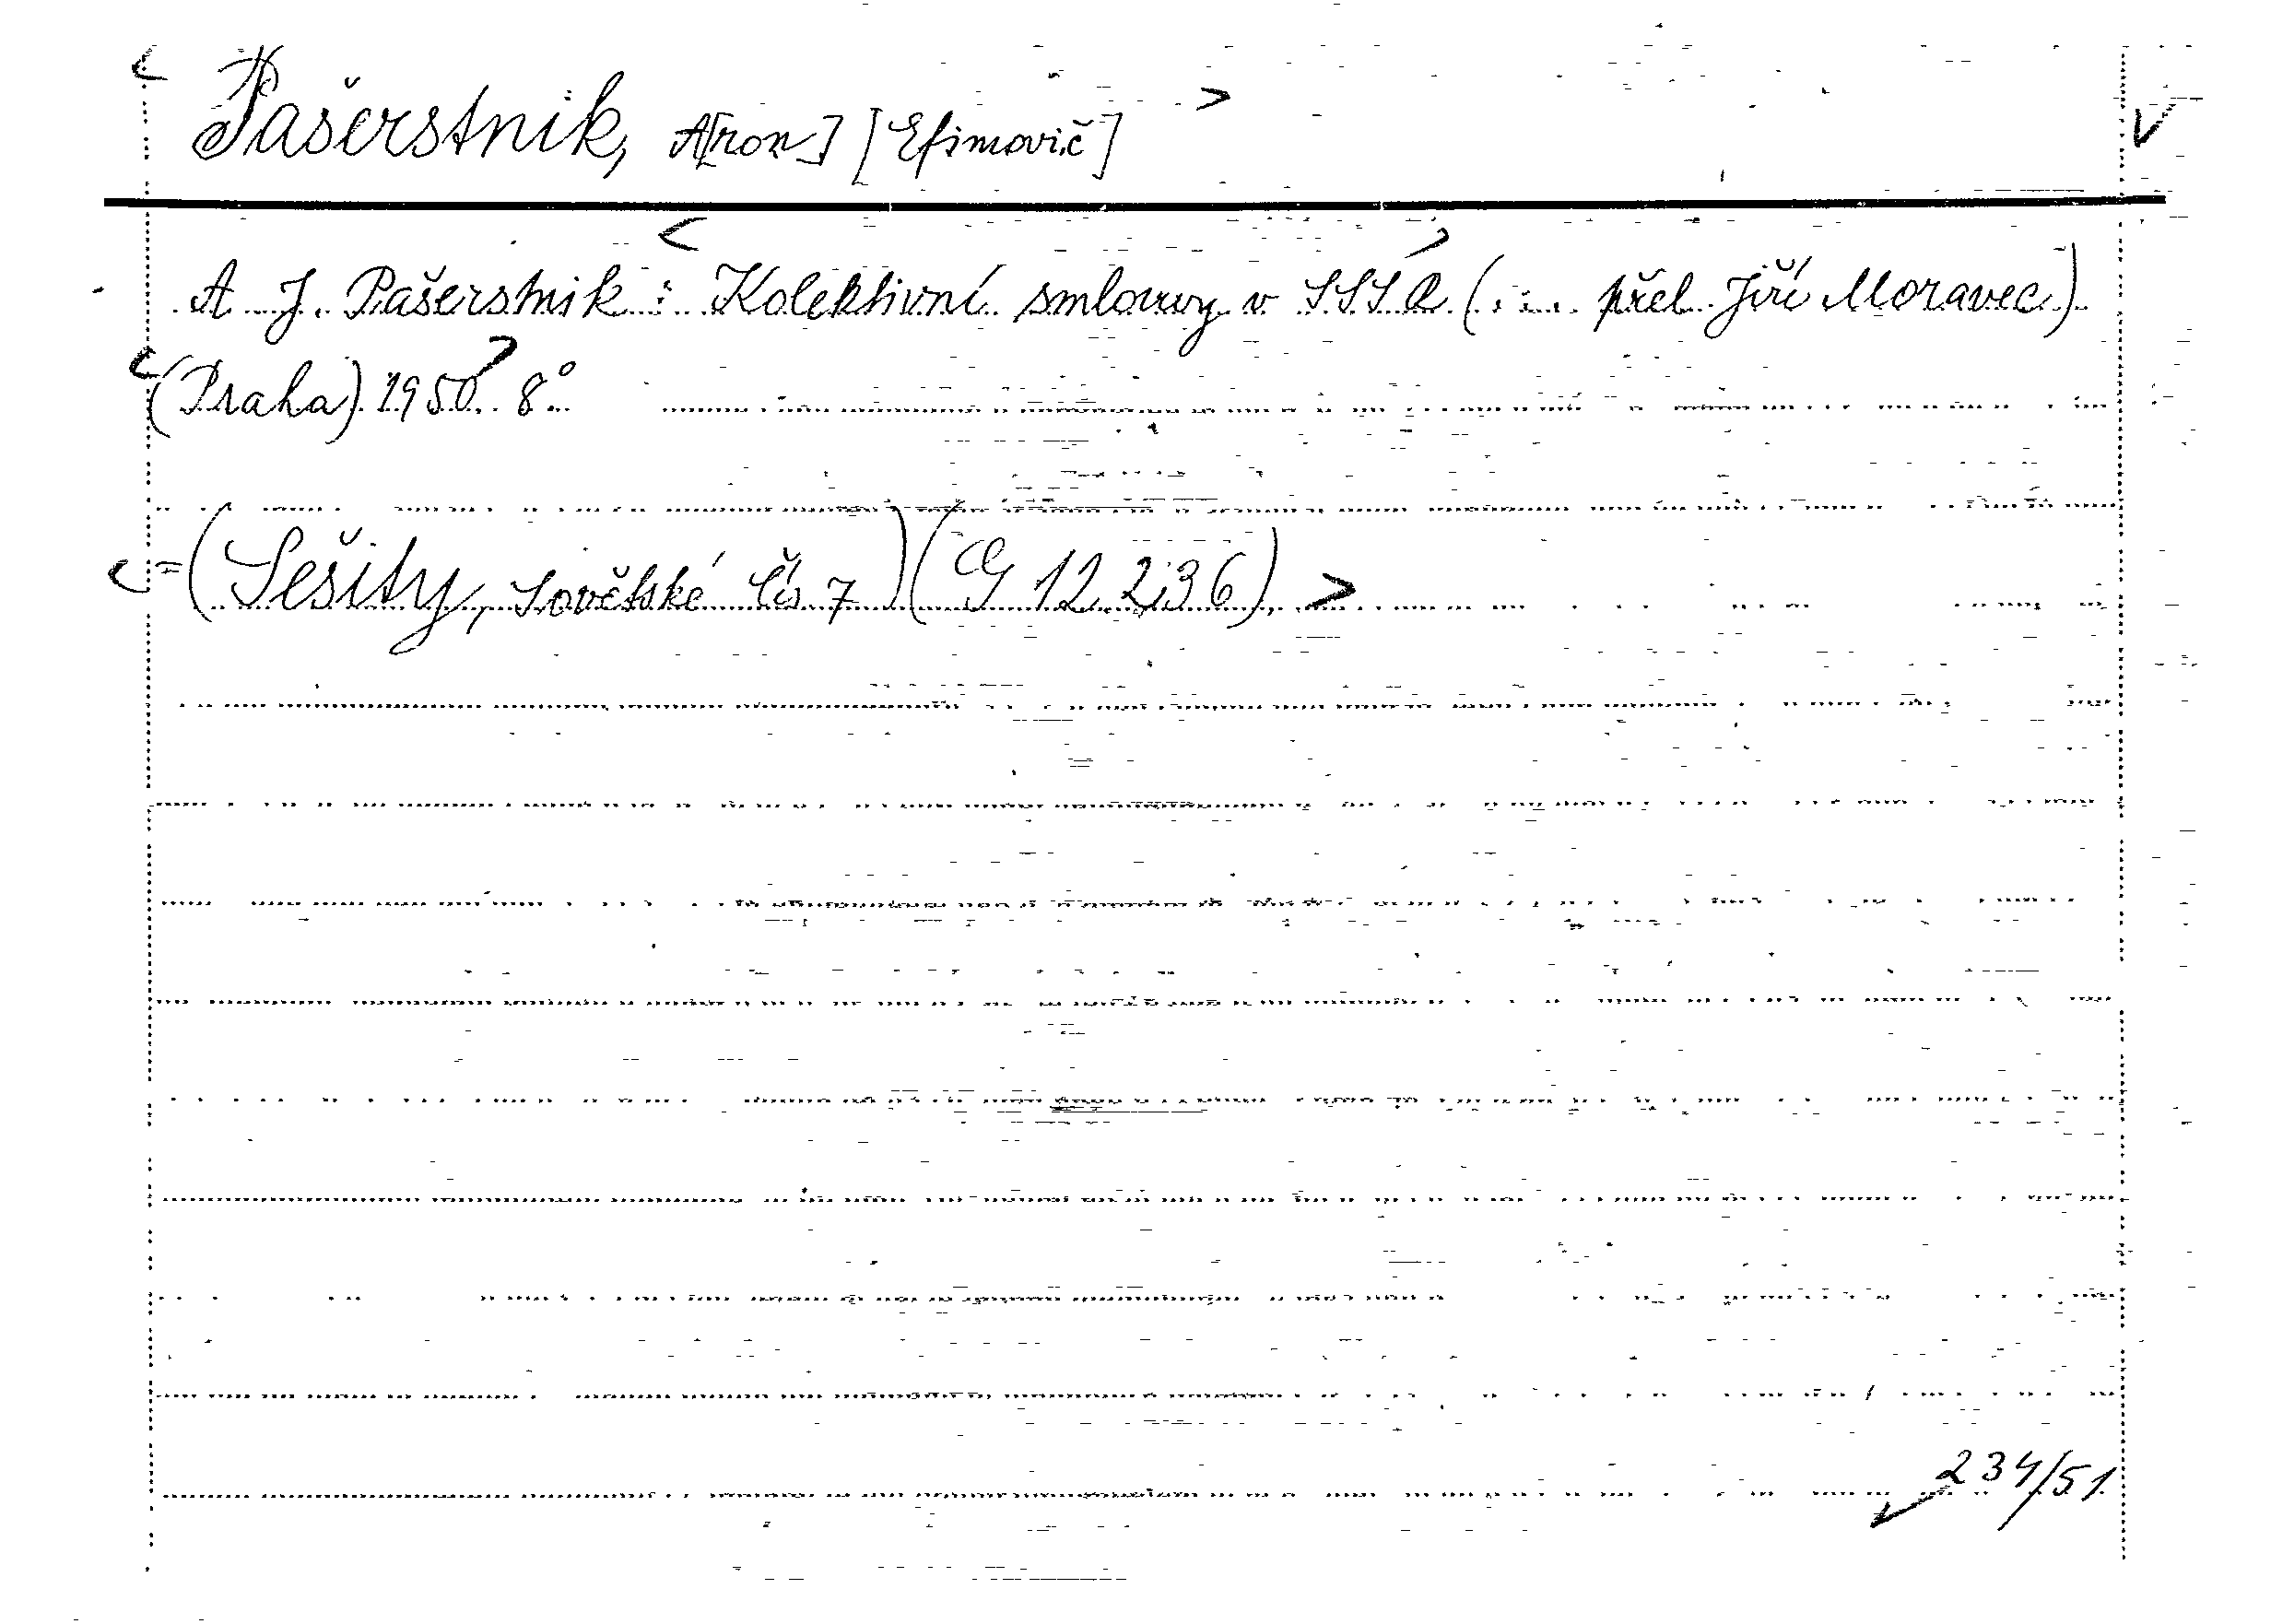 Pašerstnik, A[ron] [Efimovič]
A J. Pašerstnik: Kolektivní smlouvy v SSSR (: ... přel. Jiří Moravec)
(Praha) 1950. 8°
=(Sešity, Sovětské čís 7) (G 12.236).
234/51